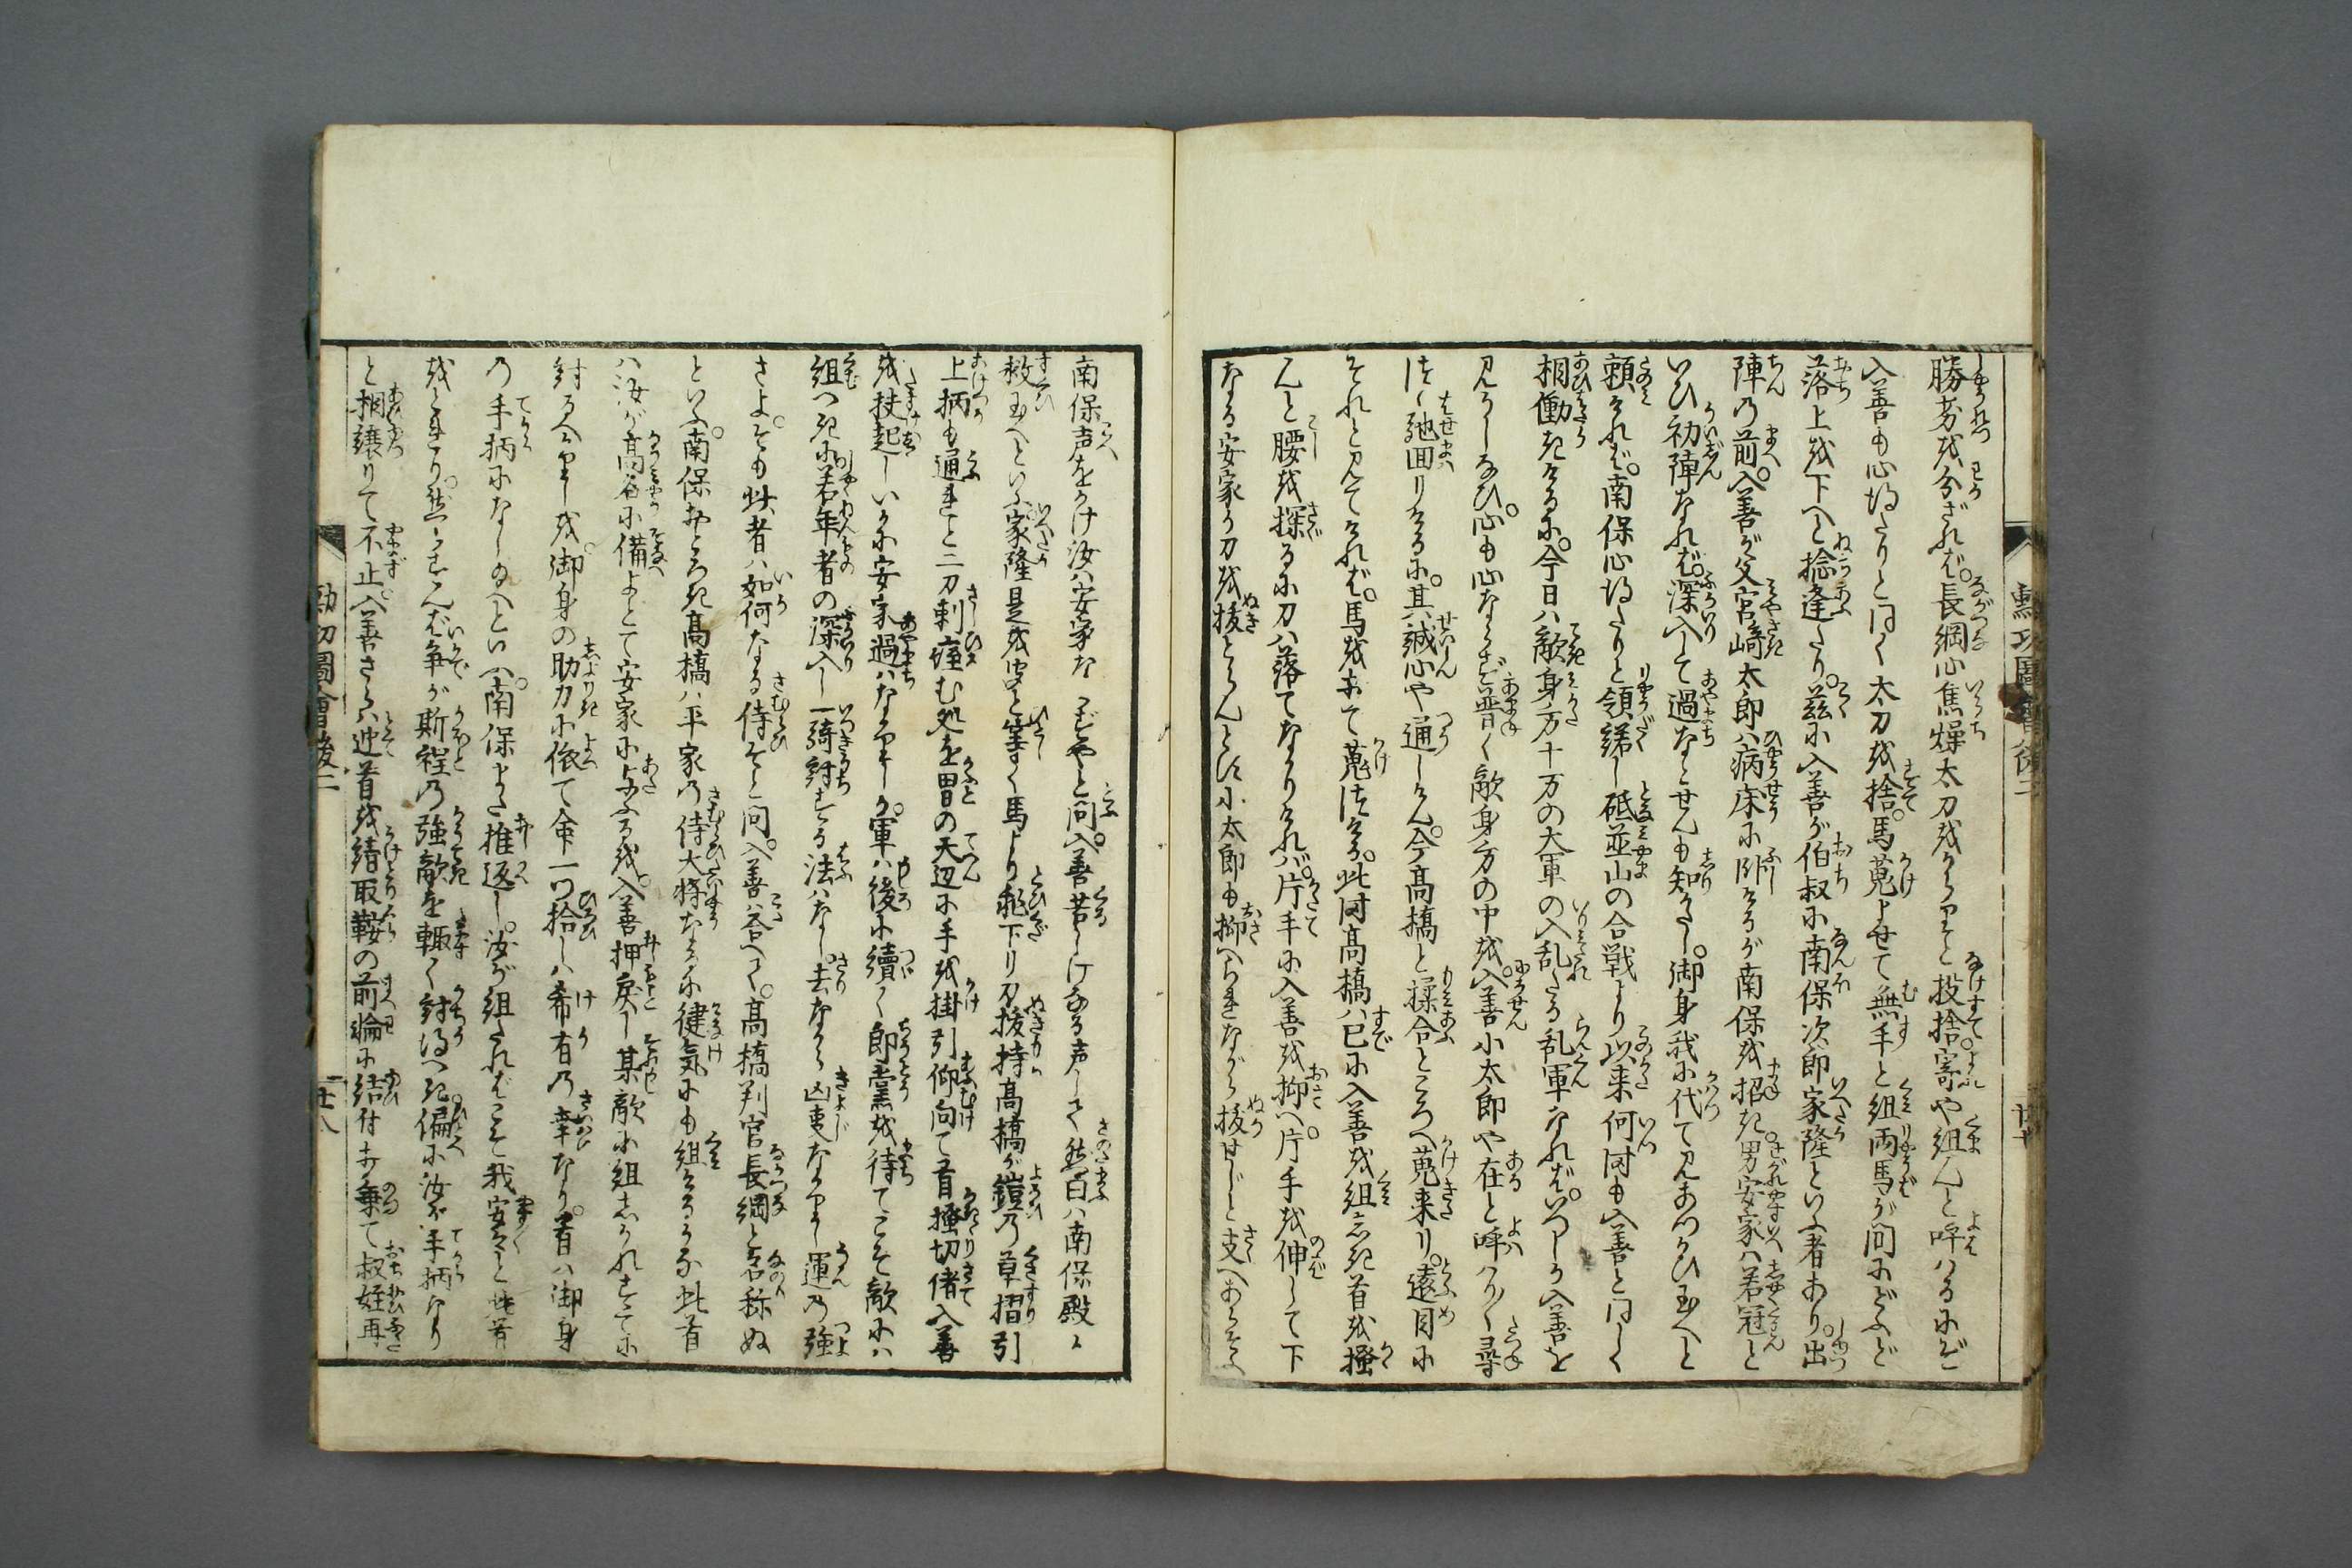 勝劣を分ざれば。長綱心焦燥太刀をからりと投捨。寄や組んと呼はるにぞ
入善も心得たりと同く太刀を捨。馬蒐よせて無手と組両馬が間にどふど
落上を下へと捻逢たり。茲に入善が伯叔に南保次郎家隆といふ者あり。出
陣の前。入善が父宮崎太郎ハ病床に臥けるが南保を招き。男安家ハ若冠と
いひ初陣なれば。深入して過なとせんも知がたし。御身我に代て見あつかひ玉へと
頼ければ。南保心得たりと領諾し砥並山の合戦より以来何時も入善と同じく
相働きけるに。今日ハ敵身方十万の大軍の入乱たる乱軍なれば。いつしか入善を
見うしなひ。心も心ならず普く敵身方の中を。入善小太郎や在と呼ハり〱尋
つゝ馳回りけるに。其誠心や通しけん。今高橋と揉合ところへ蒐来り。遠目に
それと見てければ。馬をおて蒐つくる。此時高橋ハ已に入善を組しき首を掻
んと腰を探るに刀ハ落てなかりければ。片手に入善を抑へ。片手を伸して下
なる安家が刀を抜とらんとす小太郎も抑へられながら抜せじと支へあらそふ
南保声をかけ汝ハ安家なるずやと問。入善苦しげなる声して然曰ハ南保殿よ
救玉へといふ。家隆是を聞と等く馬より飛下り刀抜持高橋が鎧の草摺引
上柄も通れと二刀刺痓む処を冑の天辺に手を掛引仰向て首掻切偖入善
を扶起しいかに安家過ハなかりしか。軍ハ後に續く郎黨を待てこそ敵にハ
組べきに若年者の深入し一騎討する法ハなし。去ながら凶事なかりし運の強
さよ。そも此者ハ如何なる侍ぞと問。入善ハ答へて。高橋判官長綱と名称ぬ
といふ。南保おどろき高橋ハ平家の侍大将なるに健気にも組けるかな此首
ハ汝が高名に備よとて安家に与ふるを。入善押戻し某敵に組しかれすでに
討るべかりしを。御身の助力に依て命一つ拾しハ希有の幸なり。首ハ御身
の手柄になし玉へといへバ。南保また推返し。汝が組たればこそ我安々と此首
をとれり。然らずんば争か斯程の強敵を輙く討得べき。偏に汝が手柄なり
と相譲りて不止。入善さらバ迚首を請取鞍の前輪に結付おき乗て叔姪再
勲功圖會後二
勲功圖會後二
廿八